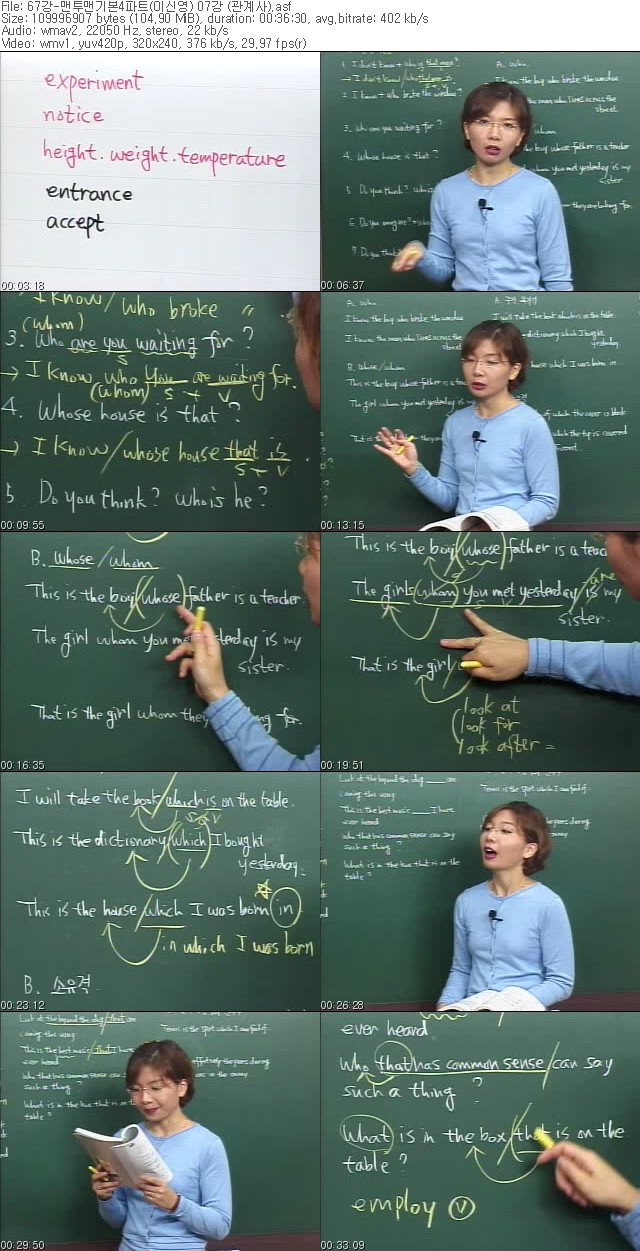 File: 67강-맨투맨기본4파트(이신영) 07강 (관계사).asf
Size: 109996907 bytes (104,90 MiB), duration: 00:36:30, avg,bitrate: 402 kb/s
Audio: wmav2, 22050 Hz, stereo, 22 kb/s
Video: wmv1, yuv420p, 320x240, 376 kb/s, 29,97 fps(r)
experiment
notice
height. weight. temperature
entrance
accept
00:03:18
1. I don't know + who is that man?
→ I don't know / who that man is.
2. I know + who broke the window?
3. Who are you waiting for?
4. Whose house is that?
5. Do you think?
7. Do you
A. Who.
I know the boy who broke the window
the man who lives across the
street.
whom
the boy whose father is a teacher
whom you met yesterday is my
sister
they are looking for.
00:06:37
I know / who broke "
(whom)
3. Who are you waiting for?
S
→ I know who you are waiting for.
(whom) S + V
4. Whose house is that?
→ I know / whose house that is.
S + V
5. Do you think? who is he?
00:09:55
A. Who.
I know the boy who broke the window
I know the man who lives across the
street.
B. Whose / whom
This is the boy whose father is a
The girl whom you met yesterday is my
That is the
A. 주격 목적격
I will take the book which is on the table.
dictionary which I bought
yesterday
which I was born in
of which the cover is black
which the top is covered
00:13:15
B. Whose / whom
This is the boy (whose) father is a teacher.
The girl whom you met yesterday is my
sister.
That is the girl whom they for.
00:16:35
This is the boy (whose) father is a teac
The girls (whom) you met yesterday is my
are
sister.
That is the girl
look at
look for
look after =
00:19:51
I will take the book which is on the table.
S V
This is the dictionary (which) I bought
yesterday.
This is the house which I was born in
in which I was born
B. 소유격
00:23:12
Look at the boy and the dog ____ are
coming this way
This is the best music ____ I have
ever heard
Who that has common sense can say
such a thing?
What is in the box that is on the
table?
Tennis is the sport which I am fond of.
00:26:28
Look at the boy and the dog / that are
coming this way
This is the best music / that I have
ever heard
Who that has common sense can
such a thing?
What is in the box that is on
table?
Tennis is the sport which I am fond of.
00:29:50
ever heard
Who that has common sense / can say
such a thing?
What is in the box / that is on the
table?
employ Ⓥ
00:33:09